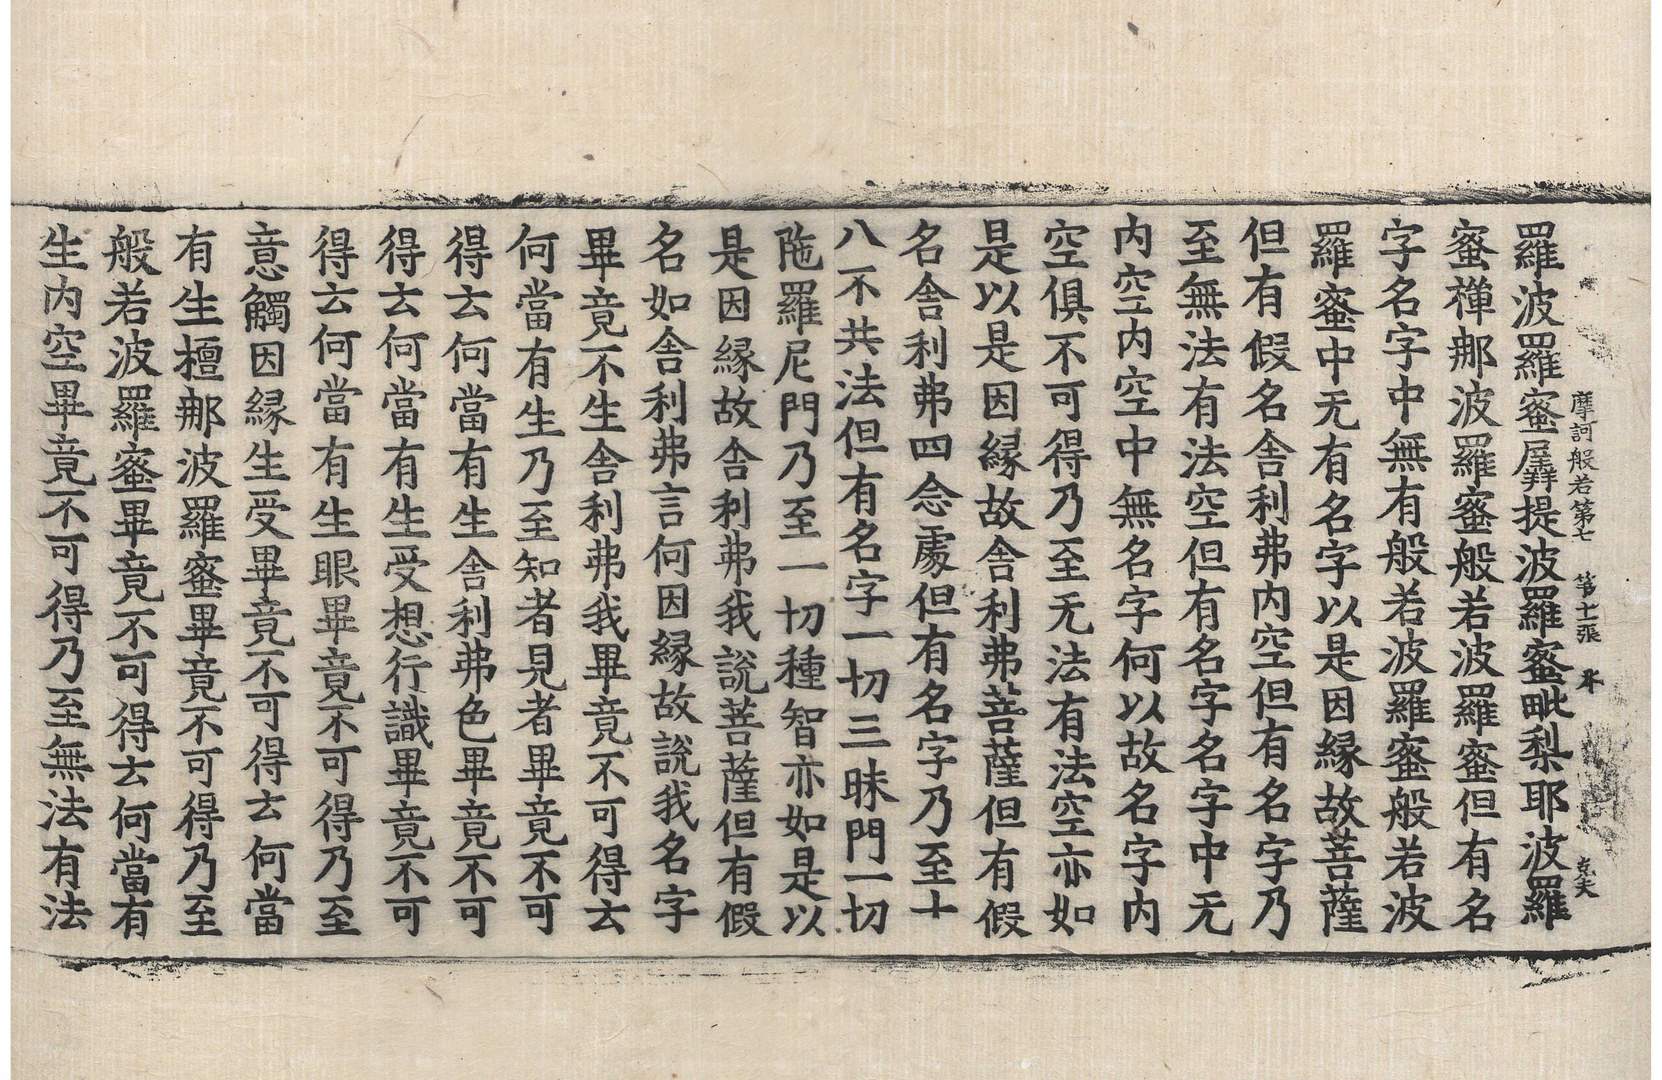 摩訶般若第七 第十七張 羊 克夫
羅波羅蜜羼提波羅蜜毗梨耶波羅
蜜禪那波羅蜜般若波羅蜜但有名
字名字中無有般若波羅蜜般若波
羅蜜中无有名字以是因緣故菩薩
但有假名舍利弗內空但有名字乃
至無法有法空但有名字名字中无
內空內空中無名字何以故名字內
空俱不可得乃至无法有法空亦如
是以是因緣故舍利弗菩薩但有假
名舍利弗四念處但有名字乃至十
八不共法但有名字一切三昧門一切
陁羅尼門乃至一切種智亦如是以
是因緣故舍利弗我說菩薩但有假
名如舍利弗言何因緣故說我名字
畢竟不生舍利弗我畢竟不可得云
何當有生乃至知者見者畢竟不可
得云何當有生舍利弗色畢竟不可
得云何當有生受想行識畢竟不可
得云何當有生眼畢竟不可得乃至
意觸因緣生受畢竟不可得云何當
有生檀那波羅蜜畢竟不可得乃至
般若波羅蜜畢竟不可得云何當有
生內空畢竟不可得乃至無法有法